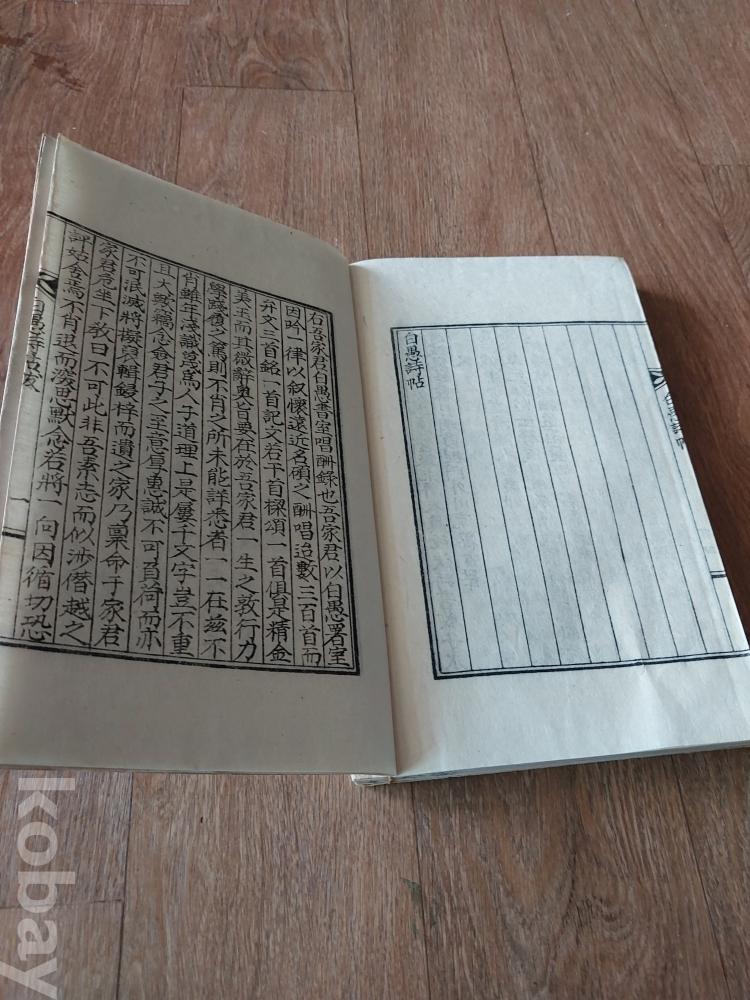 白愚詩帖
白愚詩帖
右吾家君白愚書室唱酬錄也吾家君以白愚署室
因吟一律以叙懷遠近名碩之酬唱迨數三百首而
弁文三首銘一首記文若干首樑頌一首俱是精金
美玉而其微辭奧旨要在於吾家君一生之敦行力
學踐履之篤則不肖之所未能詳悉者一一在玆不
肖雖年淺識蔑爲人子道理上是屢千文字豈不重
且大歟竊念僉君子之至意厚惠誠不可負荷而亦
不可泯滅將擬裒輯鋟梓而遺之家乃稟命于家君
家君危坐下敎曰不可此非吾素志而似涉僭越之
評姑舍焉不肖退而潑思默念若將一向因循切恐
白愚詩帖跋 一
kobay